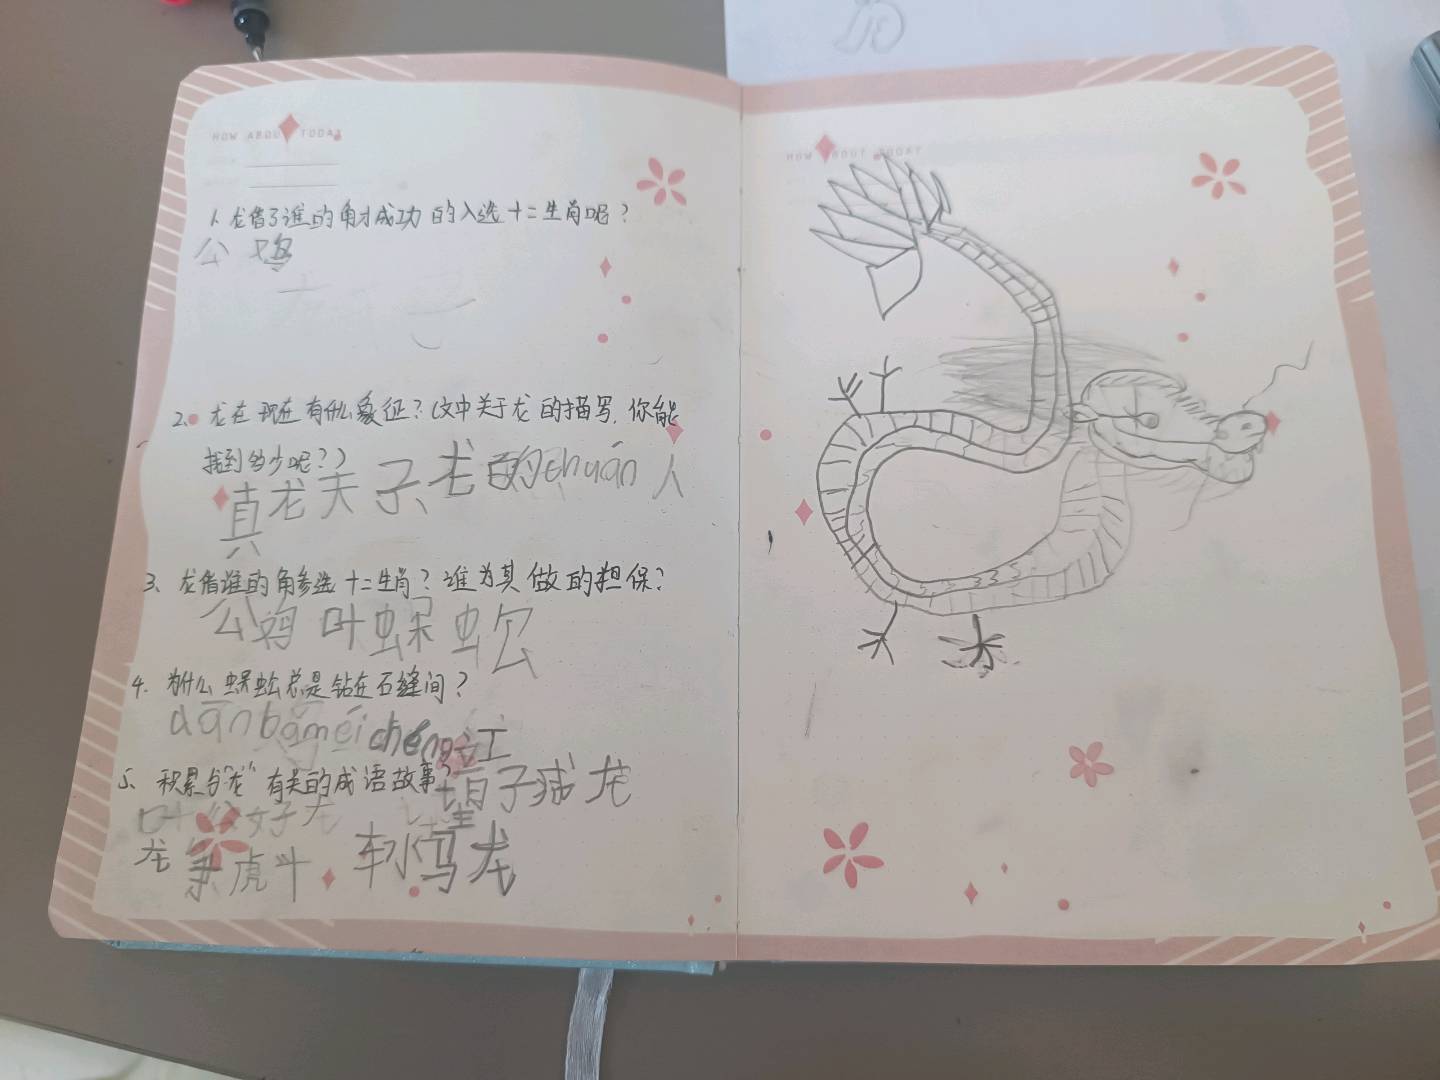 HOW ABOUT TODAY
1、龙借了谁的角才成功的入选十二生肖呢？
公鸡
2、龙在现在有什么象征？（文中关于龙的描写，你能
找到多少呢？）
真龙天子 龙的chuán人
3、龙借谁的角参选十二生肖？谁为其做的担保？
公鸡 叶蜈蚣
4、为什么蜈蚣总是钻在石缝间？
dānbǎoméichéng
5、积累与“龙”有关的成语故事？
望子成龙
叶公好龙
龙争虎斗 车水马龙
HOW ABOUT TODAY